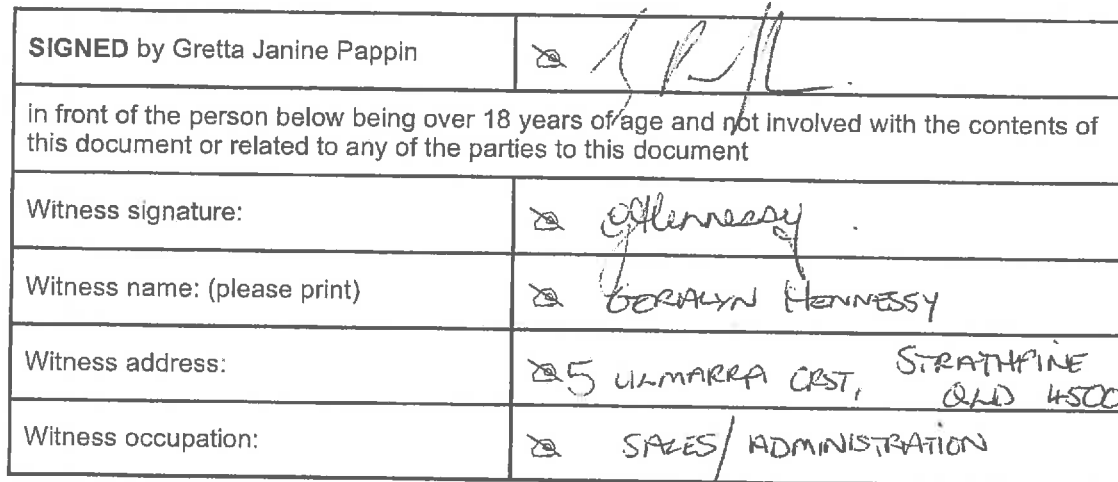 SIGNED by Gretta Janine Pappin
in front of the person below being over 18 years of age and not involved with the contents of
this document or related to any of the parties to this document
Witness signature: GHennessy
Witness name: (please print) GERALYN HENNESSY
Witness address: 5 ULMARRA CRST, STRATHPINE
QLD 4500
Witness occupation: SALES/ADMINISTRATION